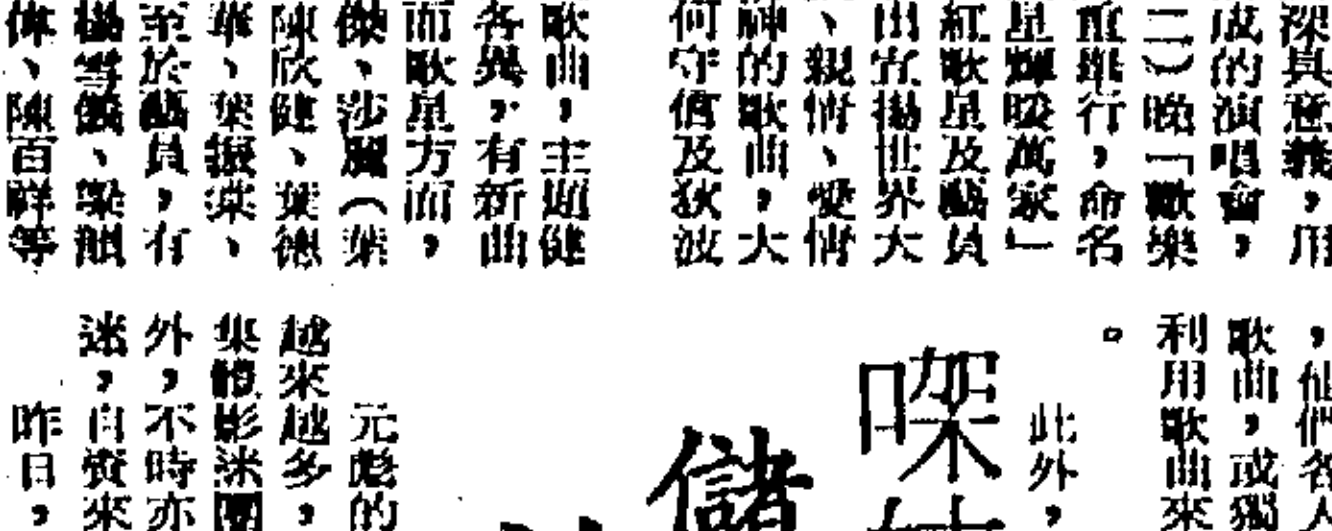 深具意義，用
成的演唱會，
二）晚「歡樂
重舉行，命名
星輝暖萬家」
紅歌星及藝員
出宣揚世界大
、親情、愛情
神的歌曲，大
何守信及狄波
歌曲，主題健
各異，有新曲
而歌星方面，
傑、莎麗（葉
陳欣健、葉德
華、葉振棠、
至於藝員，有
楊雪儀、梁韻
偉、陳百祥等
，他們各人
歌曲，或獨
利用歌曲來
。
此外，
㗎
儲
元彪的
越來越多，
集體影迷團
外，不時亦
迷，自資來
昨日，